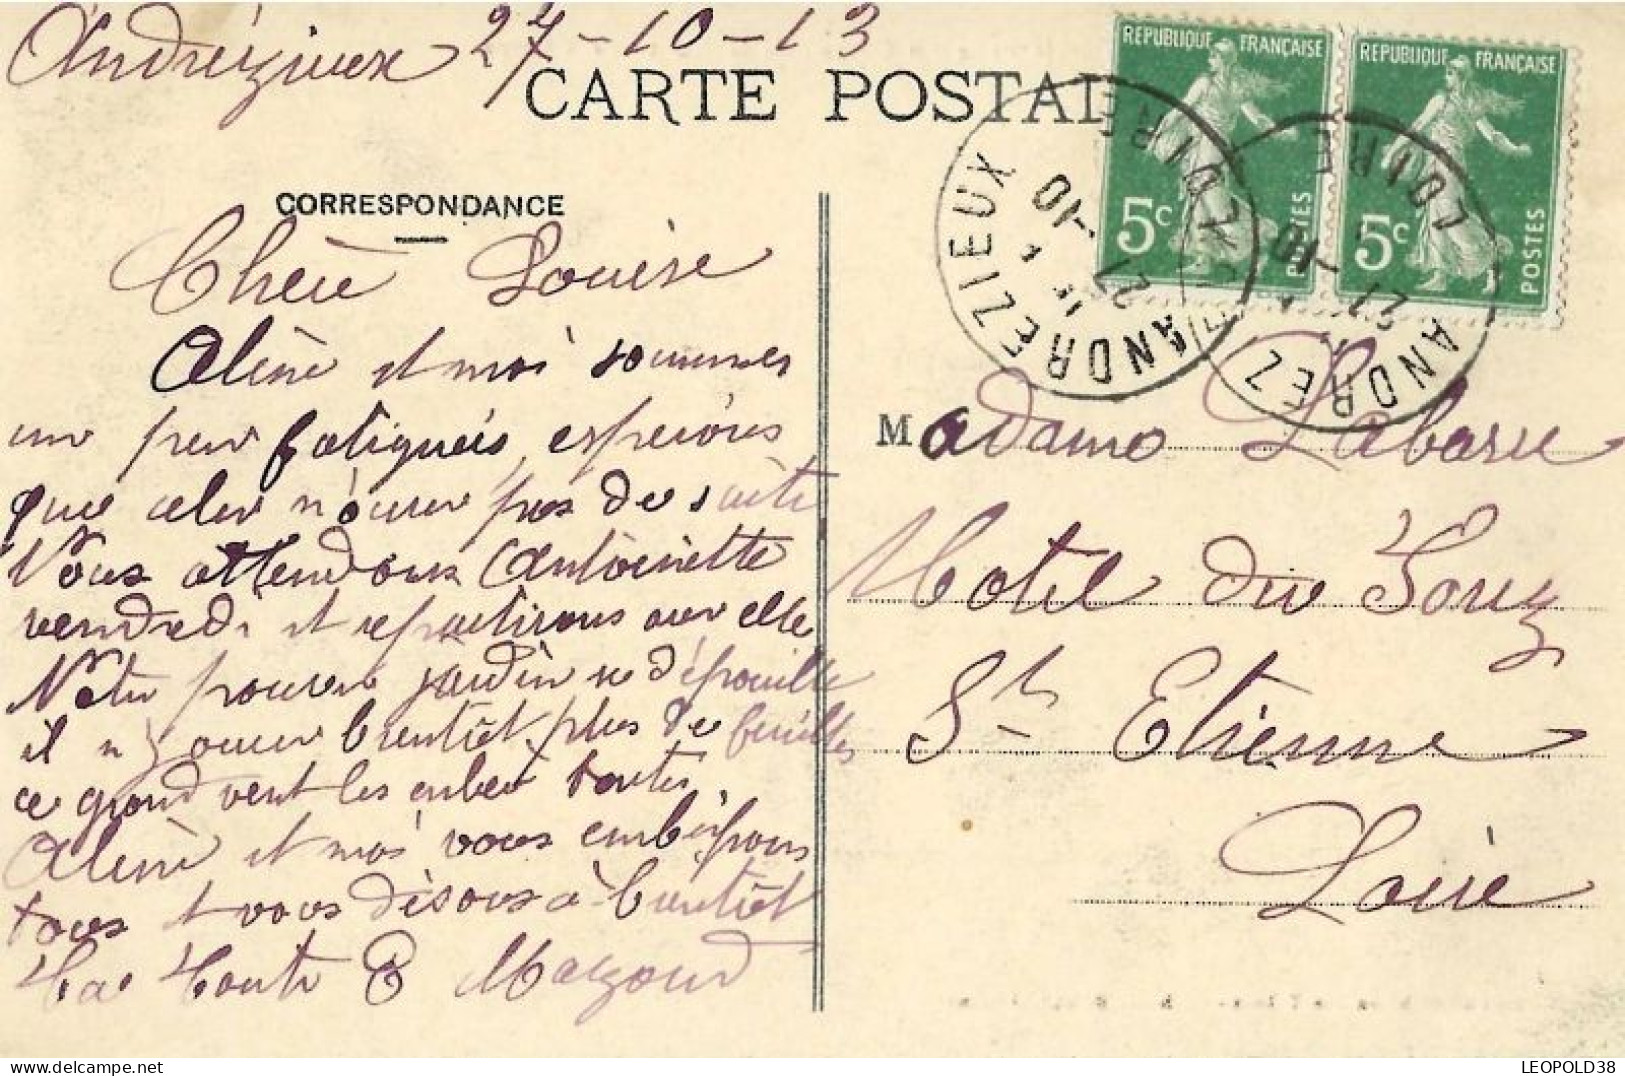 Andrézieux 27-10-13
CARTE POSTALE
REPUBLIQUE FRANÇAISE
5c
POSTES
REPUBLIQUE FRANÇAISE
5c
POSTES
ANDREZIEUX
LOIRE
27 -10
ANDREZIEUX
LOIRE
27 -10
CORRESPONDANCE
Chère Louise
et moi sommes
un peu fatiguées, espérons
que cela n'aura pas de suite
Nous attendons Antoinette
vendredi et repartirons avec elle
Notre pauvre jardin se dépouille
il n'y aura bientôt plus de feuilles
ce grand vent les enlève toutes
et moi vous embrassons
tous et vous disons à bientôt
Ta Tante
Madame Labarre
Hotel du
St Etienne
Loire
LEOPOLD38